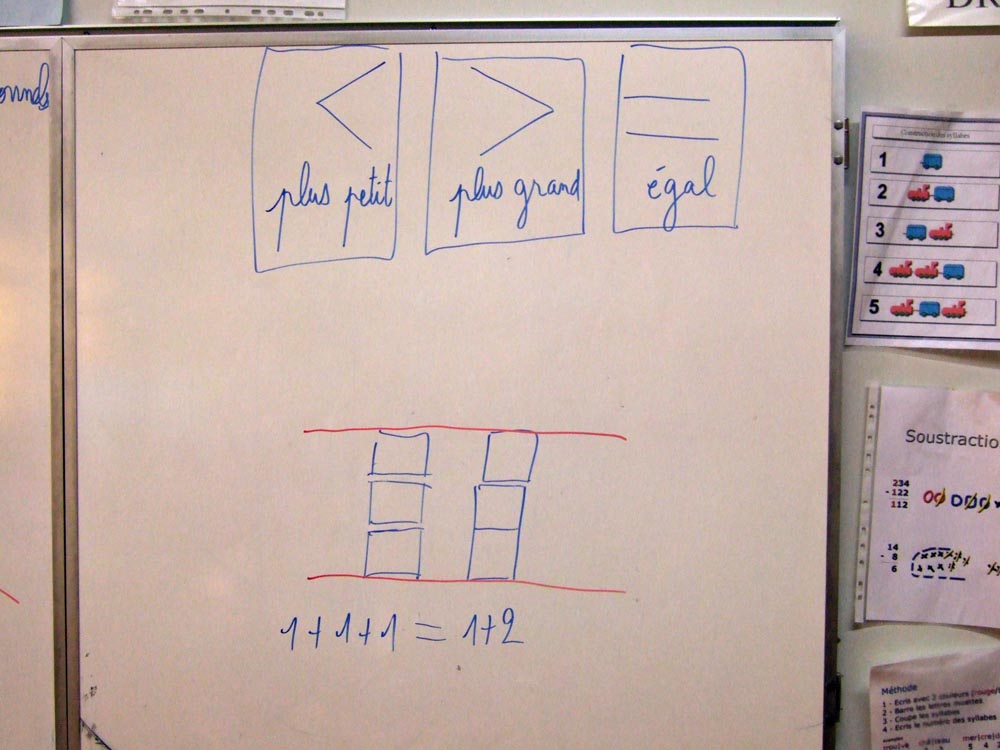 <
plus petit
>
plus grand
=
égal
1+1+1 = 1+2
Construction des syllabes
1
2
3
4
5
Soustractio
234
-122
112
14
- 8
6
Méthode
1 - Ecris avec 2 couleurs (rouge/
2 - Barre les lettres muettes
3 - Coupe les syllabes
4 - Ecris le numéro des syllabes
château mer(cre)